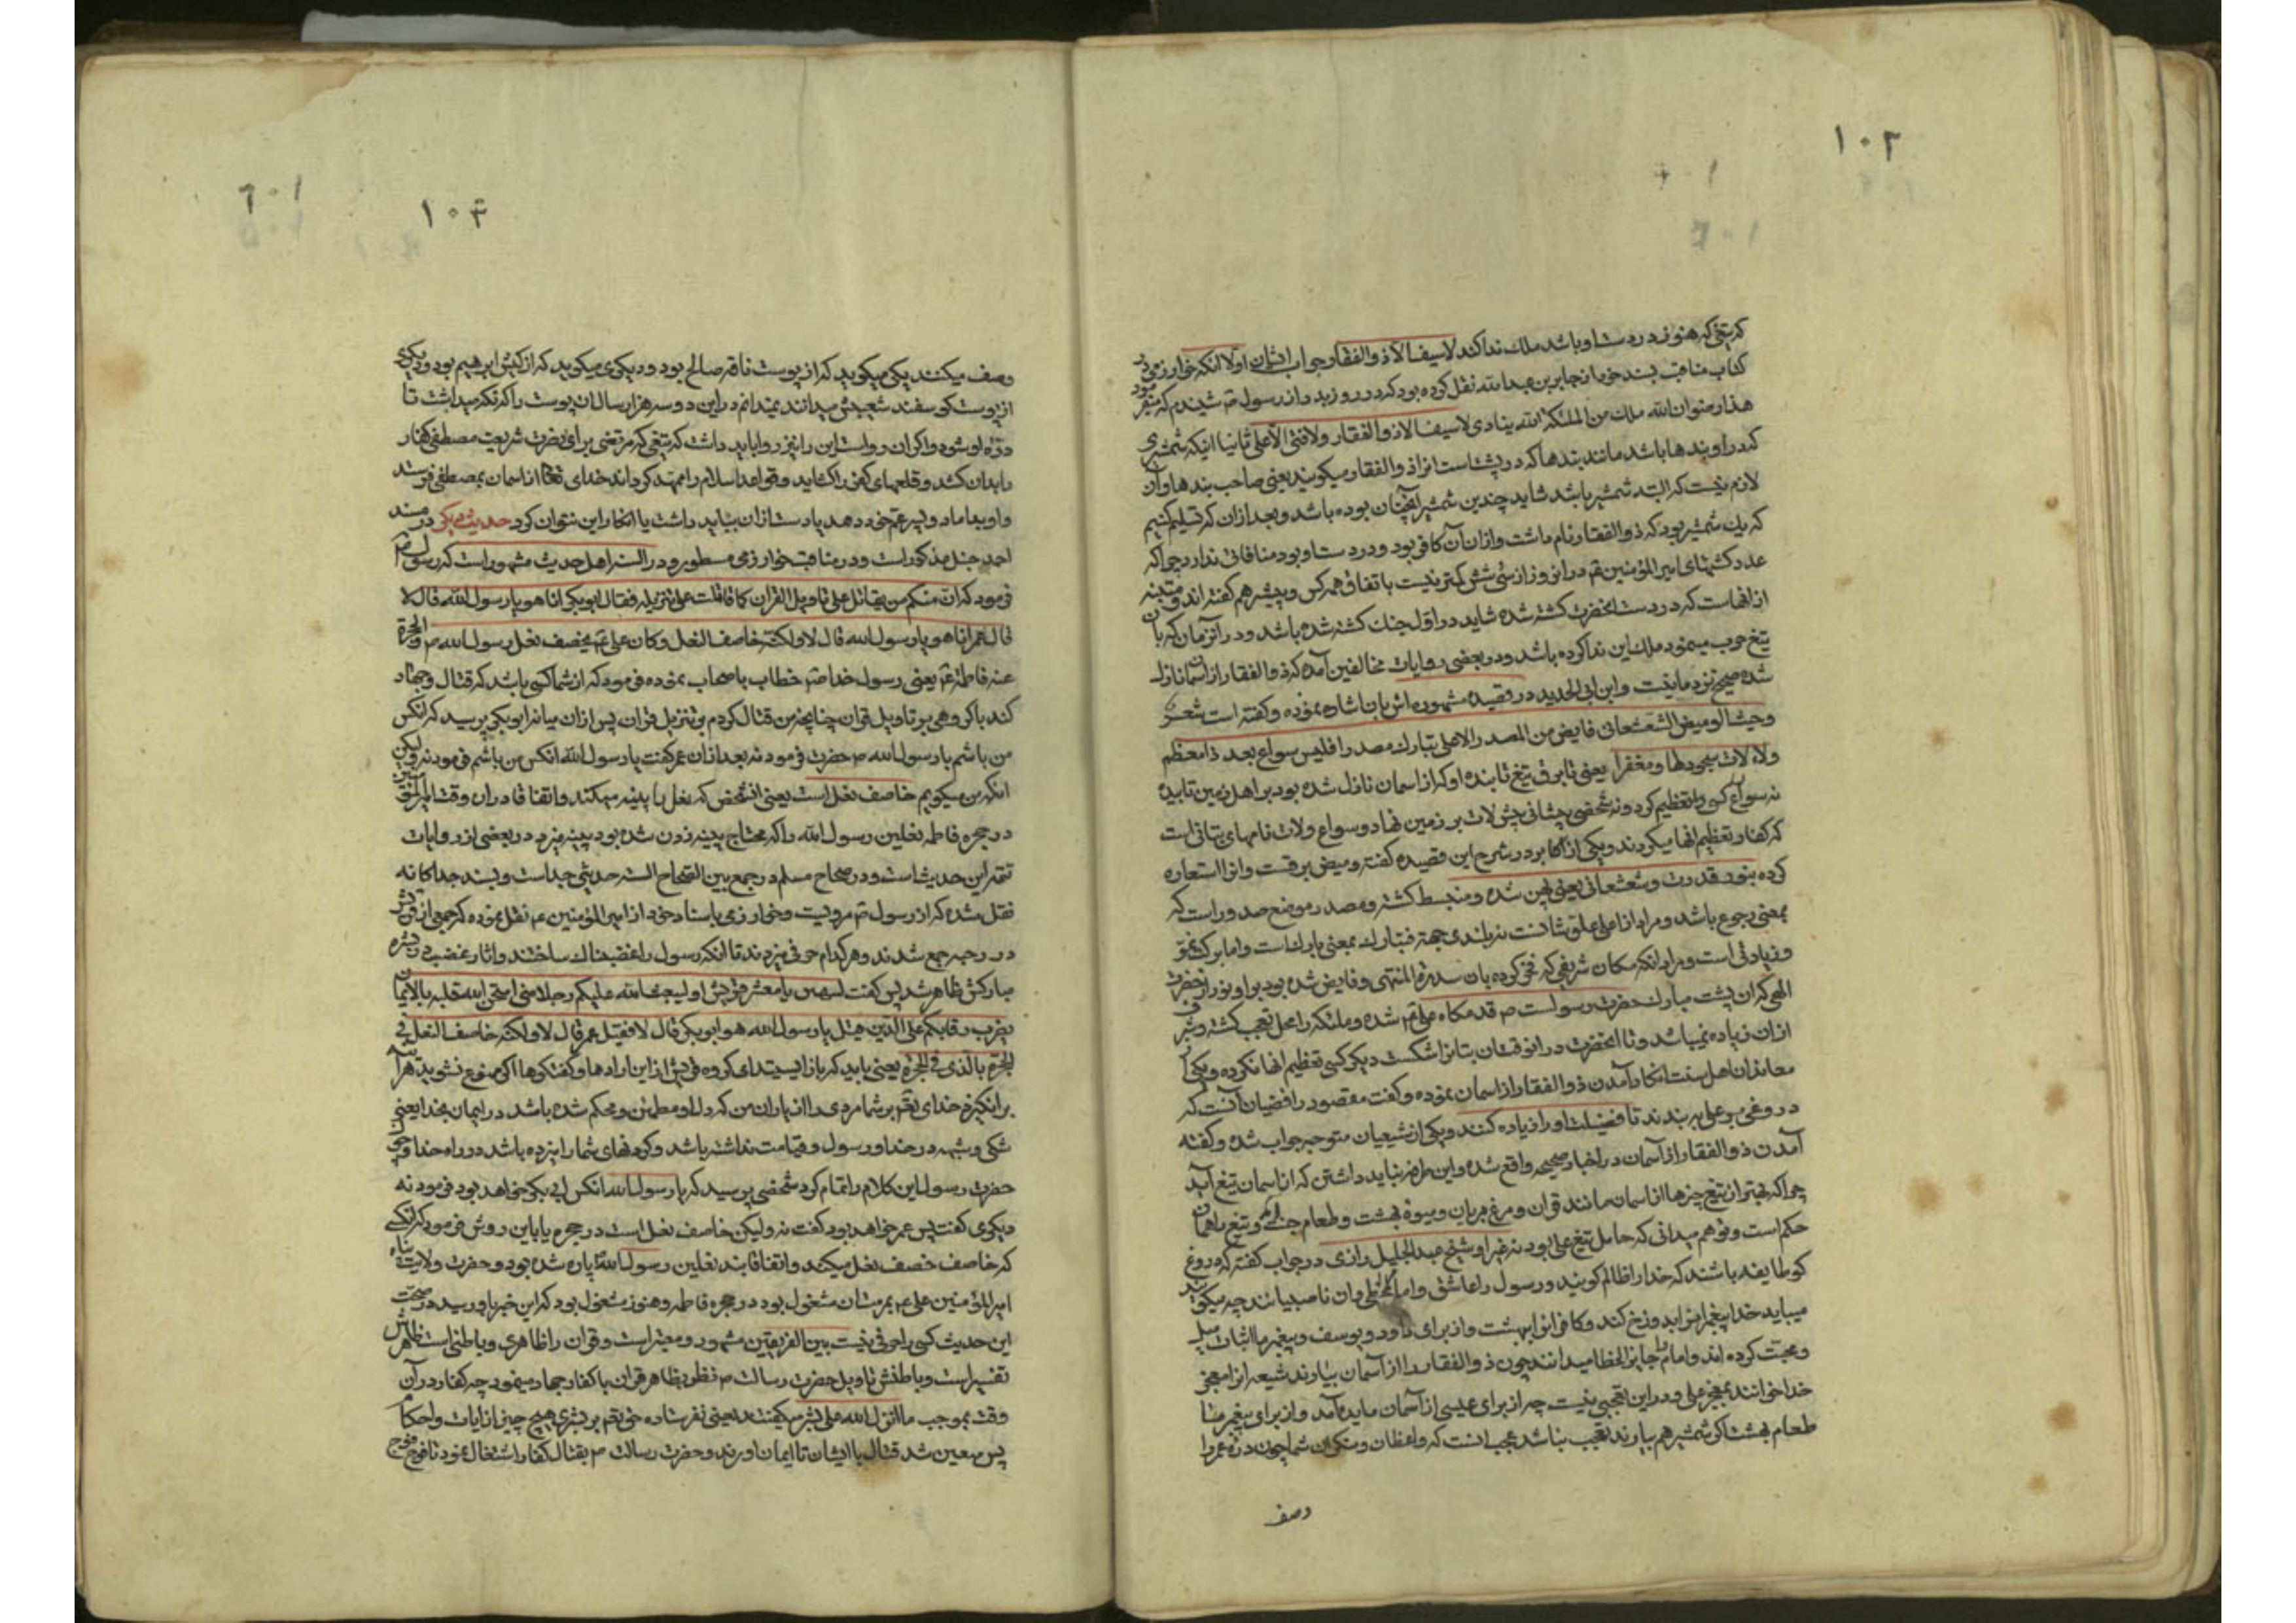 ۱۰۲
که تیغی که هنوز در دست او باشد ملک ندا کند لا سیف الا ذو الفقار جواب ایشان اولا آنکه خوارزمی در
کتاب مناقب بسند خود از جابر بن عبدالله نقل کرده بود که در روز بدر از رسول ص شنیدم که میفرمود
هذا رضوان الله ملک من الملئکة الله ینادی لا سیف الا ذو الفقار و لا فتی الا علی ثانیا اینکه شمشیری
که در او بندها باشد مانند بندها که در پشت است انرا ذو الفقار میکویند یعنی صاحب بندها و آن
لازم نیست که البته شمشیر باشد شاید چندین شمشیر آنچنان بوده باشد و بعد از ان که تسلیم کنیم
که یک شمشیر بود که ذو الفقار نام داشت و از ان آن کافر بود و در دست او بود منافاتی ندارد چرا که
عدد کشتهای امیر المؤمنین ع در انروز از سی شش کمتر نیست باتفاق همه کس و بیشتر هم گفته اند و منبه
از انهاست که در دست انحضرت کشته شده شاید در اول جنک کشته شده باشد و در آنزمان که بان
تیغ حرب مینمود ملک این ندا کرده باشد و در بعضی روایات مخالفین آمده که ذو الفقار از اسمان نازل
شده صحیح نزد ما نیست و ابن ابی الحدید در قصیده مشهوره اش بان اشاره نموده و کفته است شعر
و حیث الومیض الشعشعانی فایض من المصدر الاعلی تبارک مصدرا فلیس سواع بعد ذا معظم
ولا لات مسجودا لها و معفرا یعنی تا برق تیغ تابنده او که از اسمان نازل شده بود بر اهل زمین تابیده
نه سواع کسی را تعظیم کرد و نه شخصی پیشانی پیش لات بر زمین نهاد و سواع و لات نامهای بتانی است
که کفار تعظیم انها میکردند و یکی از اکابر در شرح این قصیده کفته و میض برقست و انرا استعاره
کرده بنور قدرت و شعشعانی یعنی پهن شده و منبسط کشته و مصدر موضع صدور است که
بمعنی رجوع باشد و مراد از اعلی علو شانست نه بلندی جهة فتبارک بمعنی بارک است و اما برکت نمو
و زیادتی است و مراد انکه مکان شریفی که نخی کرده بان سدرة المنتهی و فایض شده بود بر او نور از حضرت
الهی که ان پشت مبارک حضرت رسولست ص قدمگاه علی ع شده و ملئکه را محل تعجب کشته و شرفی
از ان زیاده نمیباشد و تا انحضرت در انوقت ان بتانرا شکست دیکر کسی تعظیم انها نکرده و یکی از
معاندان اهل سنت انکار آمدن ذو الفقار از اسمان نموده و کفت مقصود رافضیان آنست که
دروغی بر علی بر بندند تا فضیلت او را زیاده کنند و یکی از شیعیان متوجه جواب شده و کفته
آمدن ذو الفقار از آسمان در اخبار صحیحه واقع شده و این طرفه نباید داشتن که از اسمان تیغ آید
چرا که بهتر از تیغ چیزها از اسمان مانند قران و مرغ بریان و میوه بهشت و طعام جنت و تیغ را همان
حکم است و توهم میدانی که حامل تیغ علی بود نه غیر او شیخ عبدالجلیل رازی در جواب کفته که دروغ
کو طایفه باشند که خدا را ظالم کویند و رسول را عاشق و امام و ان ناصبیانند چه میکویند
میباید خدا پیغمبرانرا بدوزخ کند و کافرانرا ببهشت و از برای داود و یوسف و پیغمبر ما اثبات میل
و محبت کرده اند و امام را جایز الخطا میدانند چون ذو الفقار را از آسمان بیاورند شیعه انرا معجز
خدا خوانند بمعجز علی و در این تعجبی نیست چه از برای عیسی از آسمان مایده آمد و از برای پیغمبر ما
طعام بهشت اکر شمشیر هم بیاورند تعجب نباشد عجب انست که واعظان و منکران شما چون دره عمر را
وصف
۱۰۳
وصف میکنند یکی میکوید که از پوست ناقه صالح بود و دیکری میکوید که از کبش ابرهیم بود و دیکری
از پوست کوسفند شعیبش میدانند نمیدانم در این دو سه هزار سال ان پوست را که نکه میداشت تا
دره او شود و اکر ان رواست این را نیز روا باید داشت که تیغی که مرتضی برای نصرت شریعت مصطفی کفار
را بدان کشد و قلعهای کفر را کشاید و قواعد اسلام را ممهد کرداند خدای تعالی از اسمان بمصطفی فرستد
و او بداماد و پسر عم خود دهد یا دست از ان بباید داشت یا انکار این نتوان کرد حدیث دیکر در مسند
احمد حنبل مذکور است و در مناقب خوارزمی مسطور و در السنه اهل حدیث مشهور است که رسول ص
فرمود که ان منکم من یقاتل علی تاویل القران کما قاتلت علی تنزیله فقال ابو بکر انا هو یا رسول الله قال لا
قال عمر انا هو یا رسول الله قال لا و لکنه خاصف النعل و کان علی ع یخصف نعل رسول الله ص فی الحجرة
عند فاطمة ع یعنی رسول خدا ص خطاب باصحاب نموده فرمود که از شما کسی باشد که قتال و جهاد
کند با کروهی بر تاویل قران چنانچه من قتال کردم بر تنزیل قران پس از ان میانه ابو بکر پرسید که انکس
من باشم یا رسول الله ص حضرت فرمود نه بعد از ان عمر کفت یا رسول الله انکس من باشم فرمود نه و لیکن
انکه من میکویم خاصف نعل است یعنی انشخص که نعل را پینه میکند و اتفاقا در ان وقت امیر المؤمنین
در حجره فاطمه نعلین رسول الله را که محتاج پینه زدن شده بود پینه میزد و در بعضی از روایات
تتمه این حدیث است و در صحاح مسلم در جمع بین الصحاح السته حدیثی جداست و بسند جداکانه
نقل شده که از رسول ص مرویست و خوارزمی باسناد خود از امیر المؤمنین ع نقل نموده که جمعی از قریش
در رحبه جمع شدند و هر کدام حرفی میزدند تا انکه رسول را غضبناک ساختند و اثار غضب در بشره
مبارکش ظاهر شد پس کفت لتنتهین یا معشر قریش او لیبعثن الله علیکم رجلا منی امتحن الله قلبه بالایمان
یضرب رقابکم علی الدین قیل یا رسول الله هو ابو بکر قال لا فقیل عمر قال لا و لکنه خاصف النعل فی
الحجرة بالذی فی الحجرة یعنی باید که باز ایستید ای کروه قریش از این ارادها و کفتکوها اکر ممنوع نشوید هر آینه
برانکیزد خدای تعالی بر شما مردی را از یاران من که دل او مطمئن و محکم شده باشد در ایمان بخدا یعنی
شکی و شبهه در خدا و رسول و قیامت نداشته باشد و کردنهای شما را بزده باشد در راه خدا و چون
حضرت رسول این کلام را تمام کرد شخصی پرسید که یا رسول الله انکس ابی بکر خواهد بود فرمود نه
دیکری کفت پس عمر خواهد بود کفت نه و لیکن خاصف نعل است در حجره یا باین روش فرمود که انکس
که خاصف خصف نعل میکند و اتفاقا بند نعلین رسول الله پاره شده بود و حضرت ولایت پناه
امیر المؤمنین علی ع بمرمت ان مشغول بود در حجره فاطمه و هنوز مشغول بود که این خبر باو رسید در صحت
این حدیث کسی را حرفی نیست بین الفریقین مشهور و معتبر است و قران را ظاهری و باطنی است ظاهرش
تفسیر است و باطنش تاویل حضرت رسالت ص منظور بظاهر قران با کفار جهاد مینمود چه کفار در آن
وقت بموجب ما انزل الله علی بشر میکفتند یعنی نفرستاده حق تعالی بر بشری هیچ چیز از ایات و احکام
پس معین شد قتال با ایشان تا ایمان اورند و حضرت رسالت ص بقتال کفار اشتغال نمود تا فوج فوج